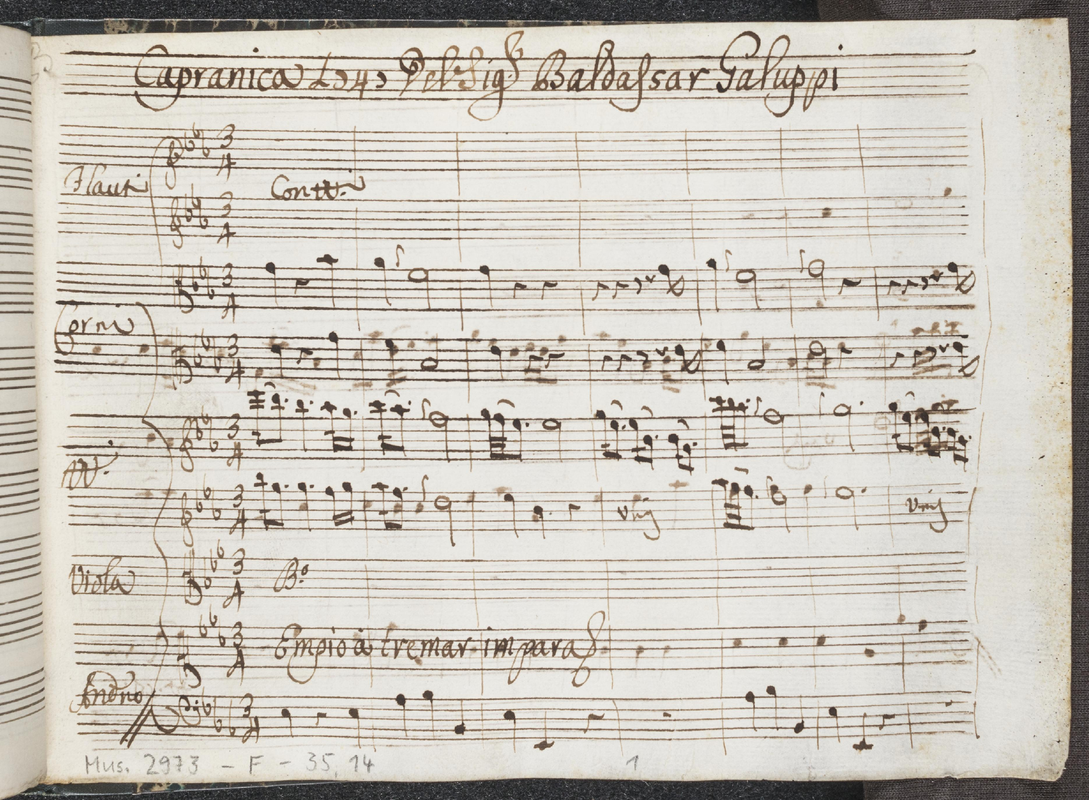 Capranica 1747 Del Sigr Baldassar Galuppi
Flauti
Con VV.
Corni
VV.
Unis
Unis
Viola
Bo
Empio à tremar impara
Andno
Mus. 2973 - F - 35, 14
1